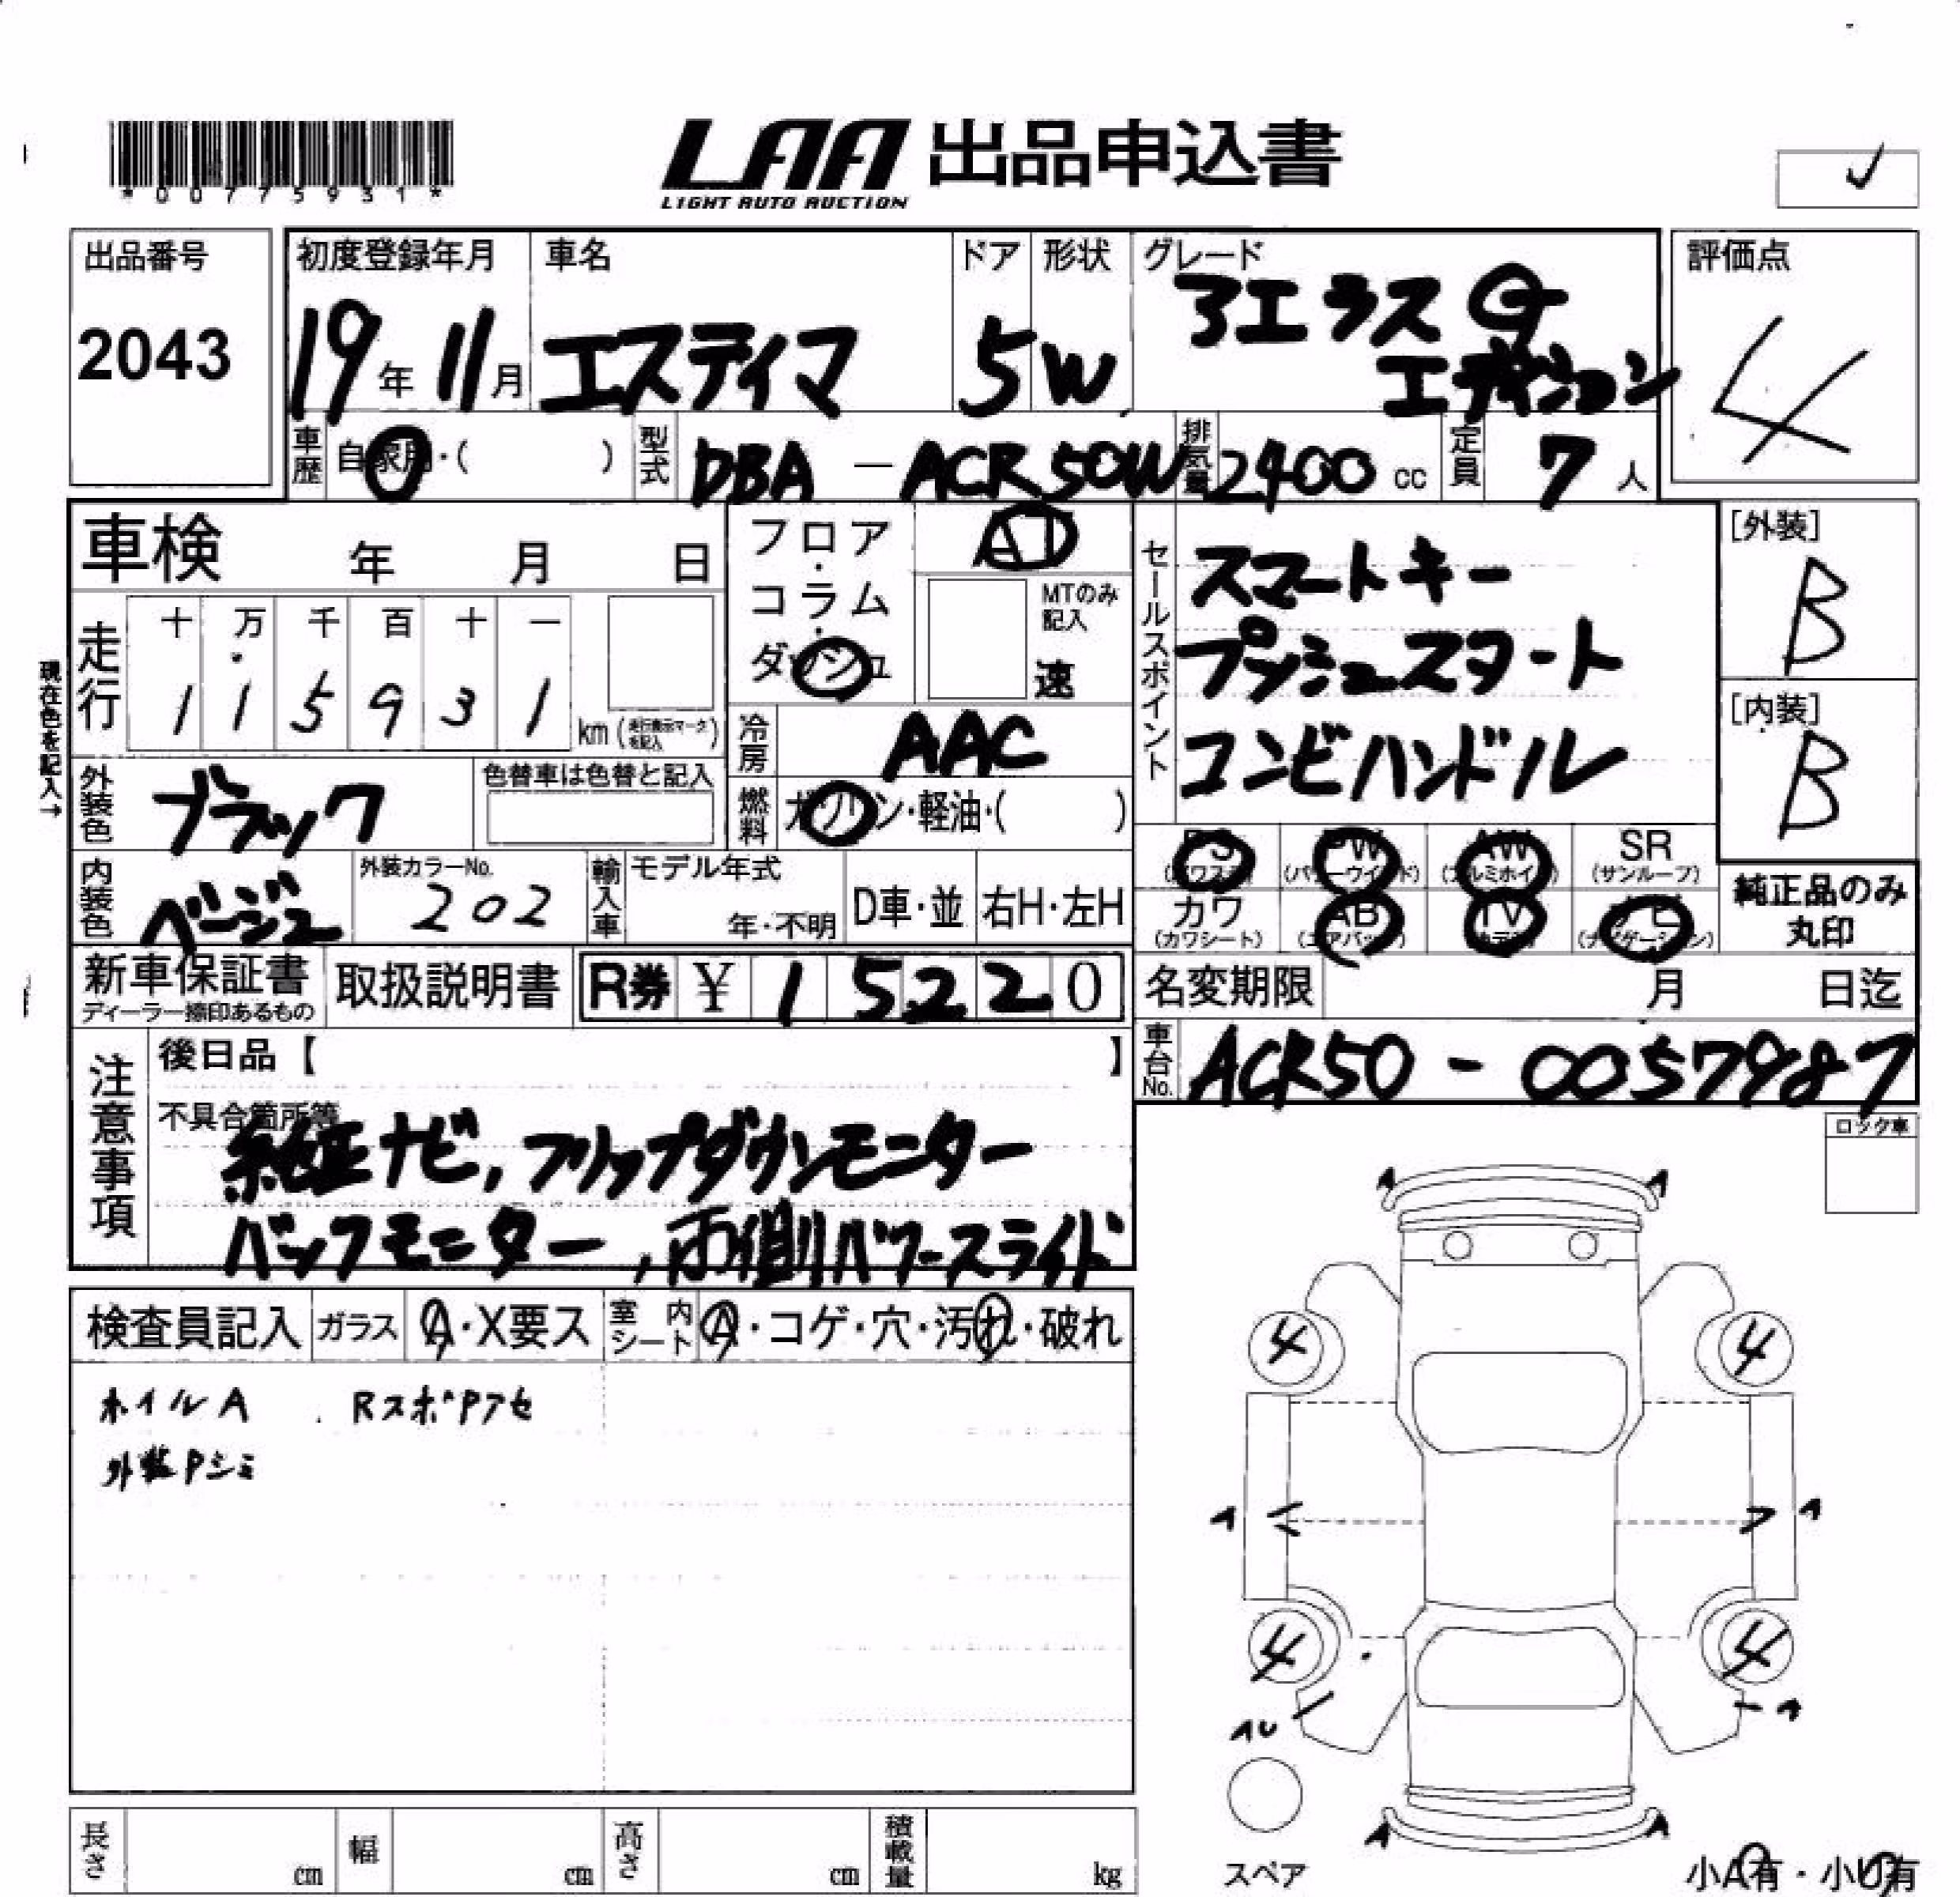 *0077593 1*
LAA 出品申込書
LIGHT AUTO AUCTION
出品番号
2043
初度登録年月
19年 11月
車名
エスティマ
ドア
5
形状
W
グレード
アエラス G
エディション
評価点
4
車歴
自家用・( )
型式
DBA - ACR50W
排気量
2400 cc
定員
7人
車検 年 月 日
フロア・コラム・ダッシュ
AT
MTのみ記入
速
セールスポイント
スマートキー
プッシュスタート
コンビハンドル
[外装]
B
[内装]
B
現在色を記入→
走行
十 万 千 百 十 一
1 1 5 9 3 1
km
冷房
AAC
外装色
ブラック
色替車は色替と記入
燃料
ガソリン・軽油・( )
PS
PW
AW
SR
(サンルーフ)
内装色
ベージュ
外装カラーNo.
202
輸入車
モデル年式
年・不明
D車・並
右H・左H
カワ
(カワシート)
AB
TV
ナビ
純正品のみ
丸印
新車保証書
ディーラー捺印あるもの
取扱説明書
R券 ¥ 1 5 2 2 0
名変期限 月 日迄
車台No.
ACR50 - 0057987
注意事項
後日品【 】
不具合箇所等
純正ナビ, フリップダウンモニター
バックモニター, 両側パワースライド
ロック車
検査員記入
ガラス
A・X要ス
室内シート
A・コゲ・穴・汚れ・破れ
ホイルA . RスポPアセ
外装Pシミ
A A
4 4
1 1
4 4
1U 1
A A
スペア
小A有・小U有
長さ cm
幅 cm
高さ cm
積載量 kg